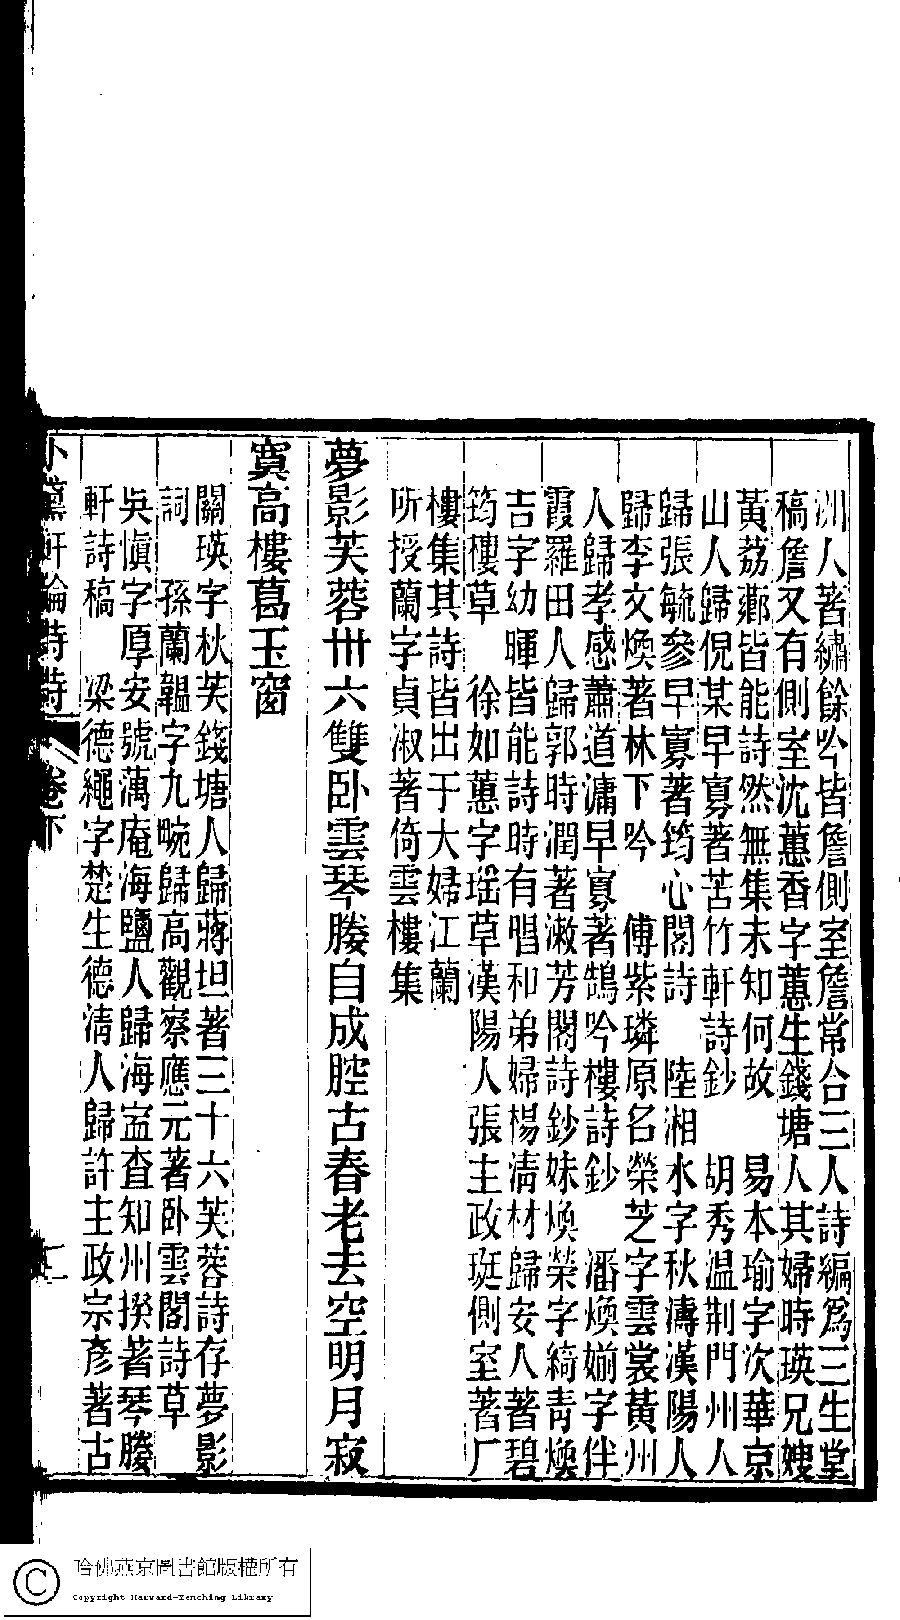 洲人著繡餘吟皆詹側室詹常合三人詩編爲三生堂
稿詹又有側室沈蕙香字蕙生錢塘人其婦時瑛兄嫂
黃荔薌皆能詩然無集未知何故　易本瑜字次華京
山人歸倪某早寡著苦竹軒詩鈔　胡秀温荆門州人
歸張毓參早寡著筠心閣詩　陸湘水字秋濤漢陽人
歸李文煥著林下吟　傅紫璘原名榮芝字雲裳黃州
人歸孝感蕭道濂早寡著鵠吟樓詩鈔　潘煥媊字伴
霞羅田人歸郭時潤著漱芳閣詩鈔妹煥榮字綺青煥
吉字幼暉皆能詩時有唱和弟婦楊清材歸安人著碧
筠樓草　徐如蕙字瑶草漢陽人張主政珽側室著厂
樓集其詩皆出于大婦江蘭
所授蘭字貞淑著倚雲樓集
夢影芙蓉卅六雙卧雲琴媵自成腔古春老去空明月寂
寞高樓葛玉窗
關瑛字秋芙錢塘人歸蔣坦著三十六芙蓉詩存夢影
詞　孫蘭韞字九畹歸高觀察應元著卧雲閣詩草
吳愼字厚安號蕅庵海鹽人歸海寍査知州揆著琴媵
軒詩稿　梁德繩字楚生德清人歸許主政宗彥著古
小黛軒論詩詩　卷下
哈佛燕京圖書館版權所有
Copyright Harvard-Yenching Library